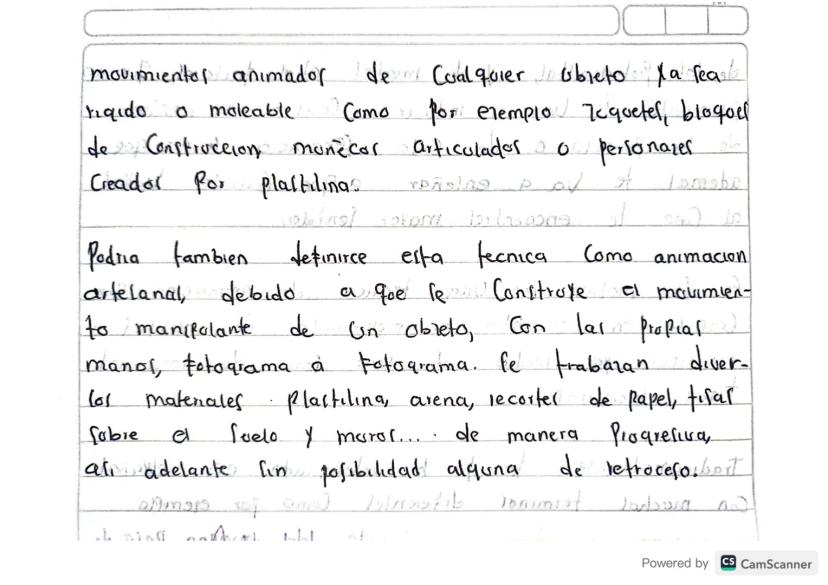 movimientos animados de cualquier objeto ya sea
rigido o moleable como por ejemplo Jcquetes, bloques
de Construccion, muñecos articulados o personajes
Creados por plastilina.
Podria tambien definirce esta tecnica como animacion
artesanal, debido a que se Construye el movimien-
to manipulante de un objeto, con las propias
manos, fotograma a fotograma. se trabajan diver-
sos materiales . plastilina, arena, recortes de papel, tisas
sobre el suelo y muros... de manera progresiva,
asi adelante sin posibilidad alguna de retroceso.
Powered by CS CamScanner